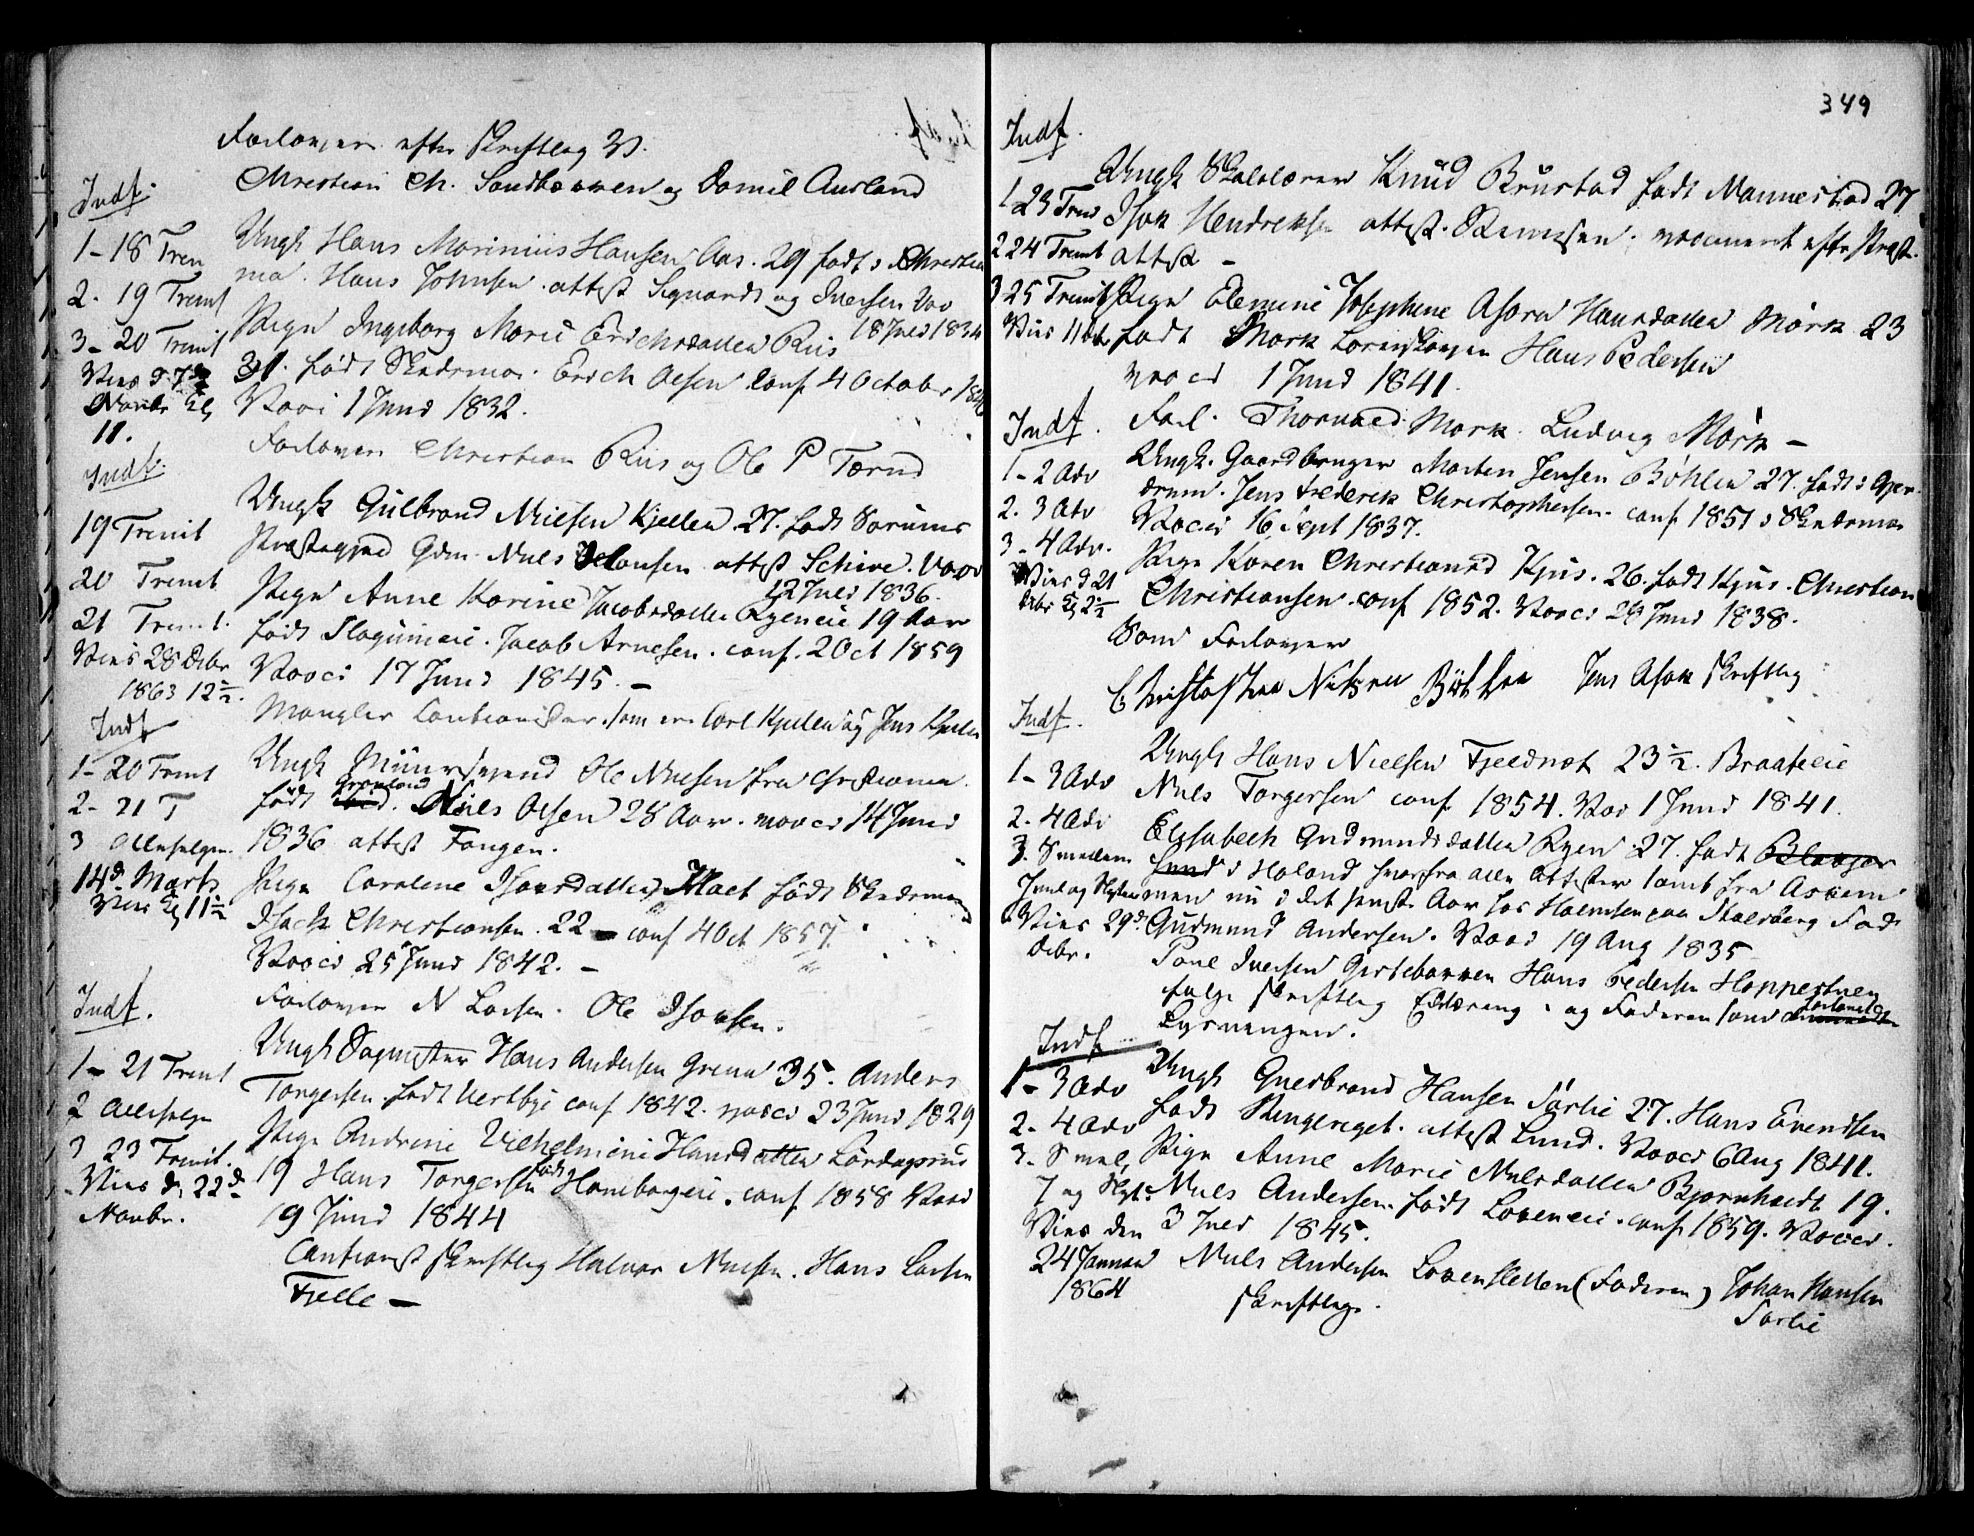 Forlovere efter Skriftlig
Christian Ch. Sandbakken og Daniel Ausland
Indf.
1-18 Trin
2. 19 Trinit
3-20 Trinit
Vies d. 7de
Novbr Kl
11.
Ungk Hans Marinius Hansen Aas. 29 født i Christia
nia. Hans Johnsen attest Signardt og Iversen Vac
18 Juli 1834
Pige Ingeborg Marie Erichsdatter Riis
31. født Skedsmo. Erich Olsen Conf 4 October
Vacc 1 Juni 1832.
Forlovere Christian Riis og Ole P Tærud
Indf.
19 Trinit
20 Trinit
21 Trinit.
Vies 28 Decbr
1863 12½.
Ungk Gulbrand Nielsen Kjellen 27. født Sørums
Præstegjeld Gdm. Niels attest Schive. Vacc
12 Juli 1836.
Pige Anne Karine Jacobsdatter Ryeneie 19 Aar
født Jacob Arnesen. conf. 2 Oct 1859
Vacci 17 Juni 1845. —
Mangler Cautionister som er Carl Kjellen og Jens Kjellen
Indf
1-20 Trinit
2-21 T
3 Allehelgen.
14d. Marts
Vies Kl 11½
Ungk Muursvend Ole Nielsen fra Christiania.
født Grønland Niels Olsen 28 Aar. vacci 14 Juni
1836 attest Fangen.
Pige Caroline Isaksdatter født Skedsmo
Isach Christiansen. 22 - conf 4 Oct 1857.
Vacci 25 Juni 1842. —
Forlovere N Larsen. Ole Isaksen.
Indf.
1-21 Trinit
2 Allehelgen
3 23 Trinit.
Vies d. 22d
Novbr.
Ungk Hans Andersen Grena 35. Anders
Torgersen. født Vestbye conf 1842. vacci 23 Juni 1829
Pige Andrine Vilhelmine Hansdatter Lørdagsrud
19 Hans Torgersen født conf 1858 Vacc
19 Juni 1844
Cautionist skriftlig Halvor Nielsen. Hans Larsen
Fjelle —
349
Indf.
1 23 Trin
2 24 Trinit
3 25 Trinit
Vies 11 Dcbr
Ungk Skolelærer Knud Brustad født Mannestad 27
Isak Hendriksen attest. vaccineret efter Præst.
attest —
Pige Elemine Josephine Asora Hansdatter Mørk 23
født Mørk Hans Pedersen
vacci 1 Juni 1841.
Forl. Thorvald Mørk. Ludvig Mørk —
Indf.
1-2 Adv
2. 3 Adv
3-4 Adv.
Vies d 21
Dcbr Kl 2½
Ungk. Gaardbruger Morten Jensen Bøhler 27. født i Gjer
drum. Jens Frederik Christophersen. conf 1851 i Skedsmo
Vacci 16 Sept 1837.
Pige Karen Christiansd Kjus. 26. født Kjus. Christian
Christiansen. conf 1852. Vacci 28 Juni 1838.
Som Forlover
Christopher Nilsen Bøhler Jens Asak skriftlig
Indf.
1-3 Adv
2. 4 Adv
3. S mellem
Juul og Nytaar
Vies 29d
Dcbr.
Ungk Hans Nielsen Fjeldnot 23½. Braateeie
Niels Torgersen conf 1854. Vac 1 Juni 1841.
Elisabeth Gudmundsdatter Ryen 27. født
i Høland hvorfra alle attester samt fra Askim
men nu i det sidste Aar hos Holmsen paa Stalsberg Fad
Gudmund Andersen. Vacc 19 Aug 1835
Poul Iversen Gistebakken Hans Pedersen Hoppestuen
følge skriftlig Erklæring. og Faderen som forlangte
Lysningen.
Indf
1-3 Adv
2-4 Adv
3. S mel,
J og Nyt
Vies den
24 Januar
1864
Ungk Gulbrand Hansen Sørlie 27. Hans Evendsen
født Ringeriget. attest Lund. Vacci 6 Aug 1841.
Pige Anne Marie Nielsdatter Bjørnholdt 19.
Niels Andersen. født Løkeneie. conf 1859. Vacci.
3 Juli 1845.
Niels Andersen Løkensletten (Faderen) Johan Hansen
skriftlig. Sørlie